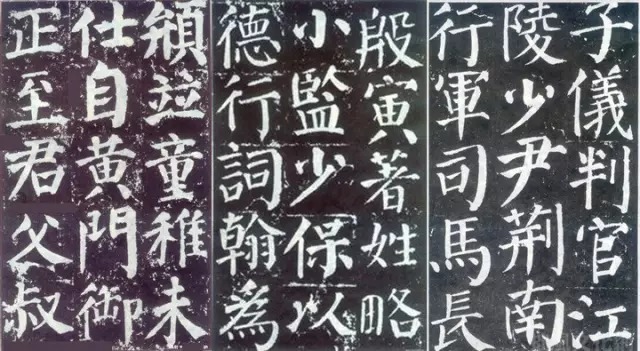 子儀判官江
陵少尹荆南
行軍司馬長
殷寅著姓略
小監少保以
德行詞翰為
並童稚未
仕自黄門御
正至君父叔